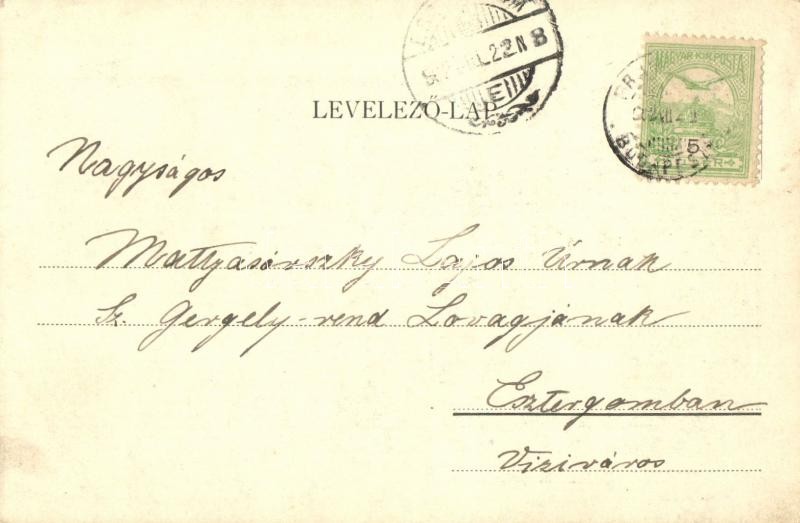 LEVELEZŐ-LAP
MAGYAR KIR. POSTA
5
BUDAPEST
Nagyságos
Mattyasóvszky Lajos Úrnak
Sz. Gergely-rend Lovagjának
Esztergomban
Viziváros